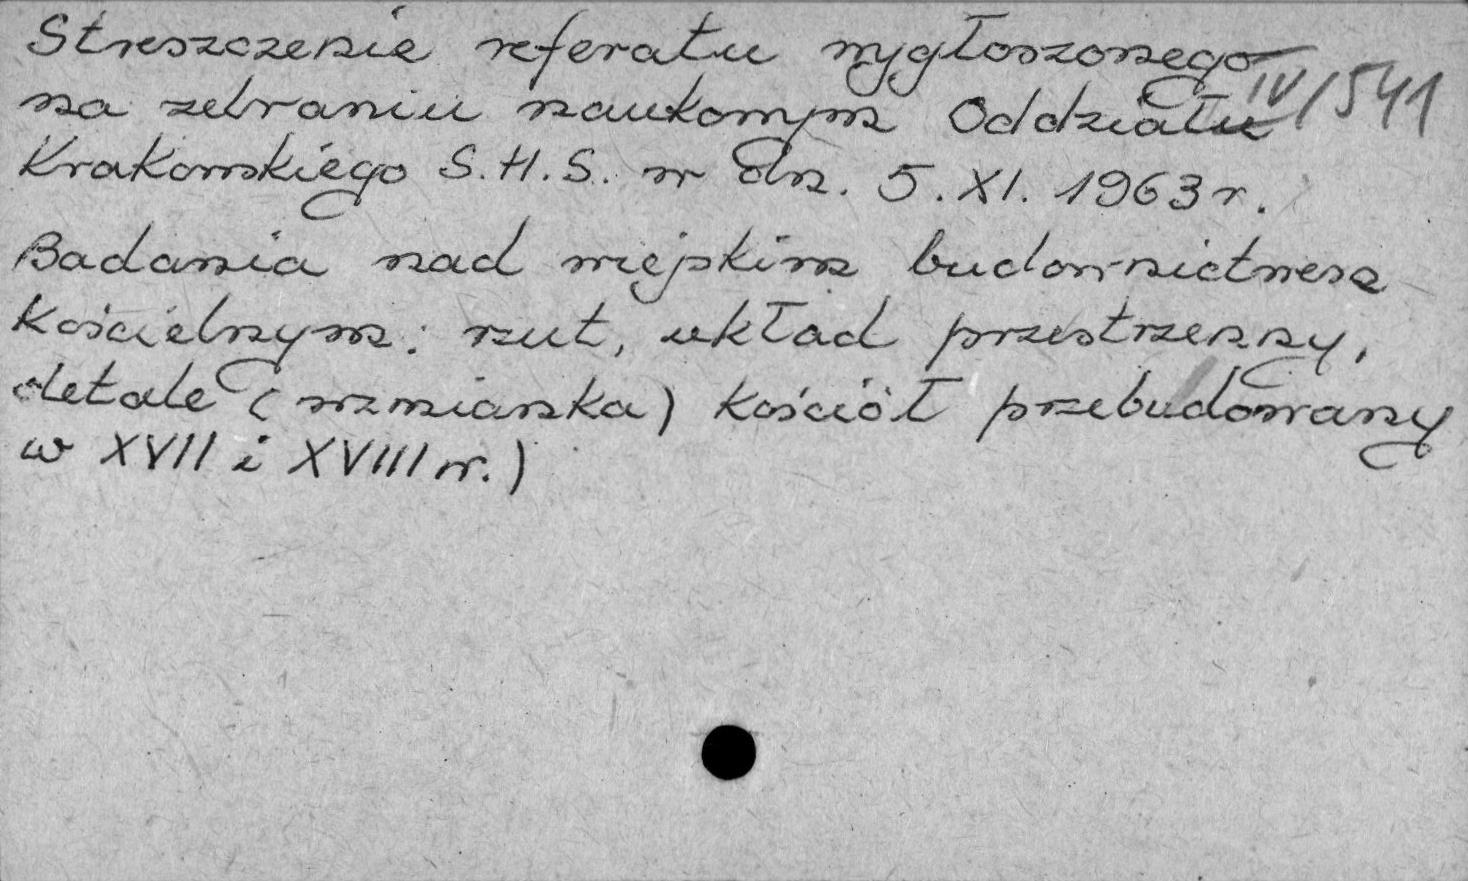 Streszczenie referatu wygłoszonego
IV/541
na zebraniu naukowym Oddziału
Krakowskiego S.H.S. w dn. 5.XI.1963 r.
Badania nad miejskim budownictwem
Kościelnym: rzut, układ przestrzenny,
detale (wzmianka) Kościół przebudowany
w XVII i XVIII w.)